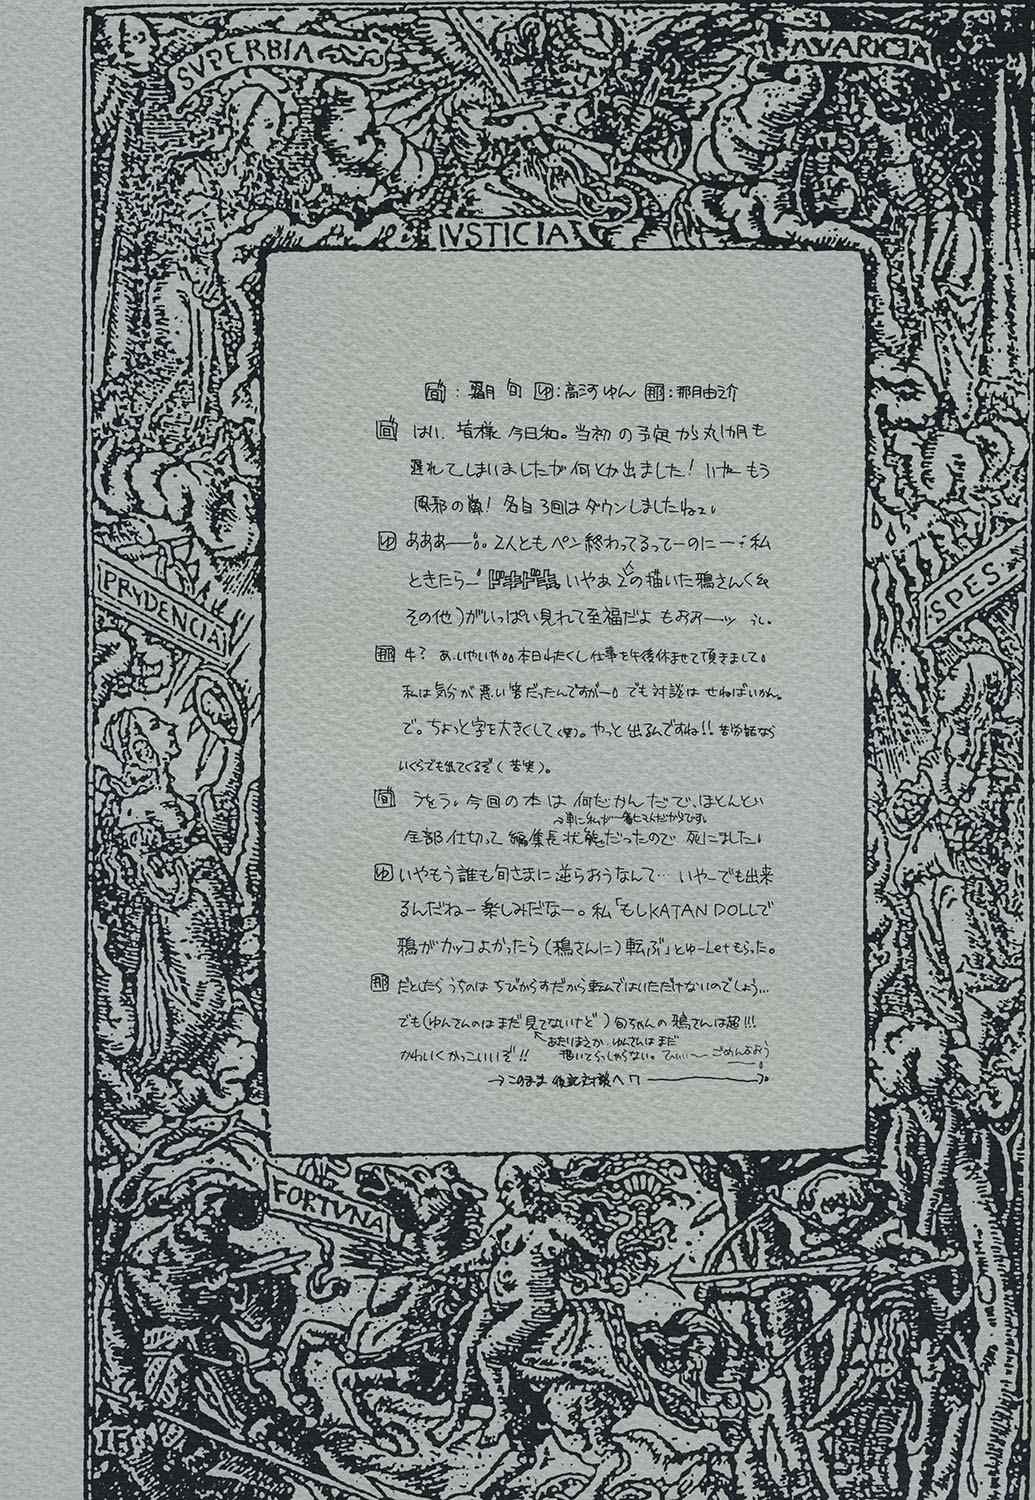 SVPERBIA
AVARICIA
IVSTICIA
PRVDENCIA
SPES
旬:翳月 旬 ゆ:高河ゆん 那:那月由之介
旬 はい、皆様 今日和。当初の予定から丸1か月も
遅れてしまいましたが何とか出ました! いやーもう
風邪の嵐! 各自3回はダウンしましたねェ。
ゆ あああ——。2人ともペン終わってるってーのにー…私
ときたら— いやあ2人の描いた鴉さんく(&
その他)がいっぱい見れて至福だよ もおおーッ うし。
那 キ? あ、いやいや。本日わたくし仕事を午後休ませて頂きまして。
私は気分が悪い筈だったんですが—。でも対談はせねばいかん。
で。ちょっと字を大きくして(笑)。やっと出るんですね!! 苦労話なら
いくらでも出てくるぞ(苦笑)。
旬 うをう。今回の本は 何だかんだで、ほとんど
全部仕切って編集長状態だったので 死にました。
ゆ いやもう誰も旬さまに逆らおうなんて… いやーでも出来
るんだねー楽しみだなー。私「もしKATAN DOLLで
鴉がカッコよかったら(鴉さんに)転ぶ」とゆーLetもらった。
那 だとしたら うちのは ちびからすだから転んではいただけないのでしょう…
でも(ゆんさんのはまだ見てないけど)旬ちゃんの鴉さんは超!!!
あたりまえか、ゆんさんはまだ
描いてらっしゃらない。てへぃ〜 ごめんよおう
かわいくかっこいいぞ!!
→このまま 後記対談へ
FORTVNA